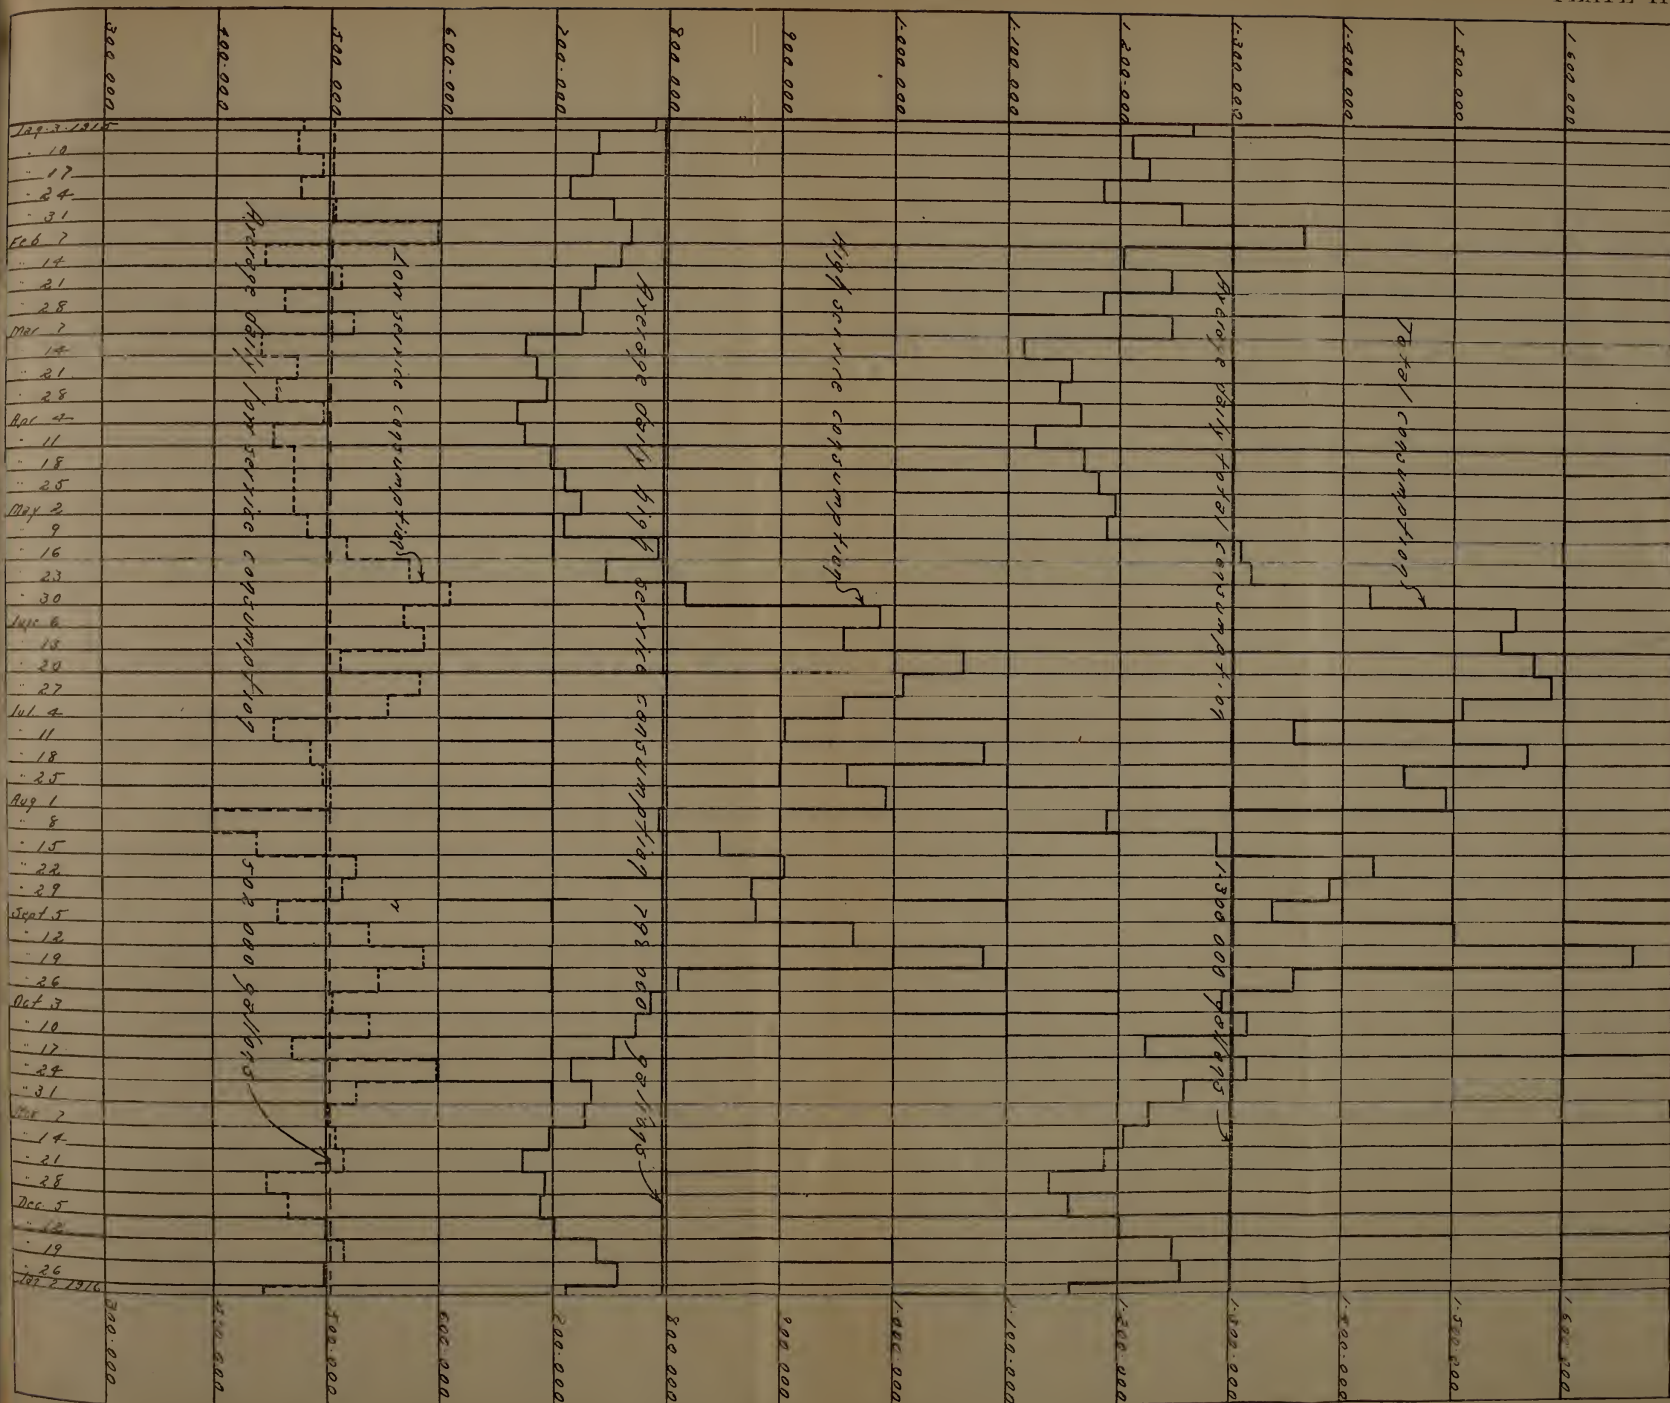 300.000
400.000
500.000
600.000
700.000
800.000
900.000
1.000.000
1.100.000
1.200.000
1.300.000
1.400.000
1.500.000
1.600.000
Jan. 3. 1915
" 10
" 17
" 24
" 31
Feb 7
" 14
" 21
" 28
Mar 7
14
" 21
" 28
Apr 4
" 11
" 18
" 25
May 2
" 9
" 16
" 23
" 30
June 6
" 13
" 20
" 27
Jul 4
" 11
" 18
" 25
Aug 1
" 8
" 15
" 22
" 29
Sept 5
" 12
" 19
" 26
Oct 3
" 10
" 17
" 24
" 31
Nov 7
" 14
" 21
" 28
Dec 5
" 12
" 19
" 26
Jan 2 1916
Total consumption
Average daily total consumption 1.300 000 gallons
High service consumption
Average daily high service consumption 798 000 gallons
Low service consumption
Average daily low service consumption 502 000 gallons
300.000
400.000
500.000
600.000
700.000
800.000
900.000
1.000.000
1.100.000
1.200.000
1.300.000
1.400.000
1.500.000
1.600.000